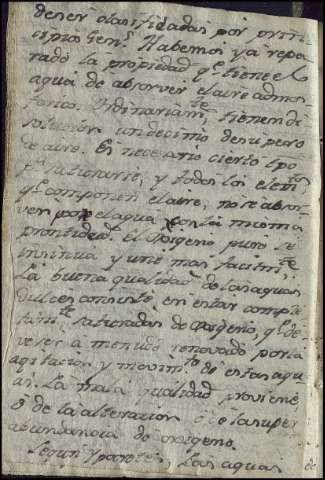 de ser clasificadas por prin-
cipios gen.s Habemos ya repa-
rado la propiedad q.e tiene el
agua de absorver el aire admos-
ferico. Ordinariam.te tienen di-
solucion un decimo de su peso
de aire. Es necesario cierto tpo
p.a saturarse, y todos los elem.tos
q.e componen el aire, no se absor-
ven por el agua con la misma
prontitud. El oxigeno puro se
insinua y une mas facilm.te
La buena qualidad de las aguas
dulces consiste, en estar comple-
tam.te saturadas de oxigeno, q.e de-
ve ser a menudo renovado por la
agitacion y movim.to de estas agu-
as. La mala qualidad proviene,
o de la alteracion ó de la super
abundancia de oxigeno.
Segun Las aguas
de